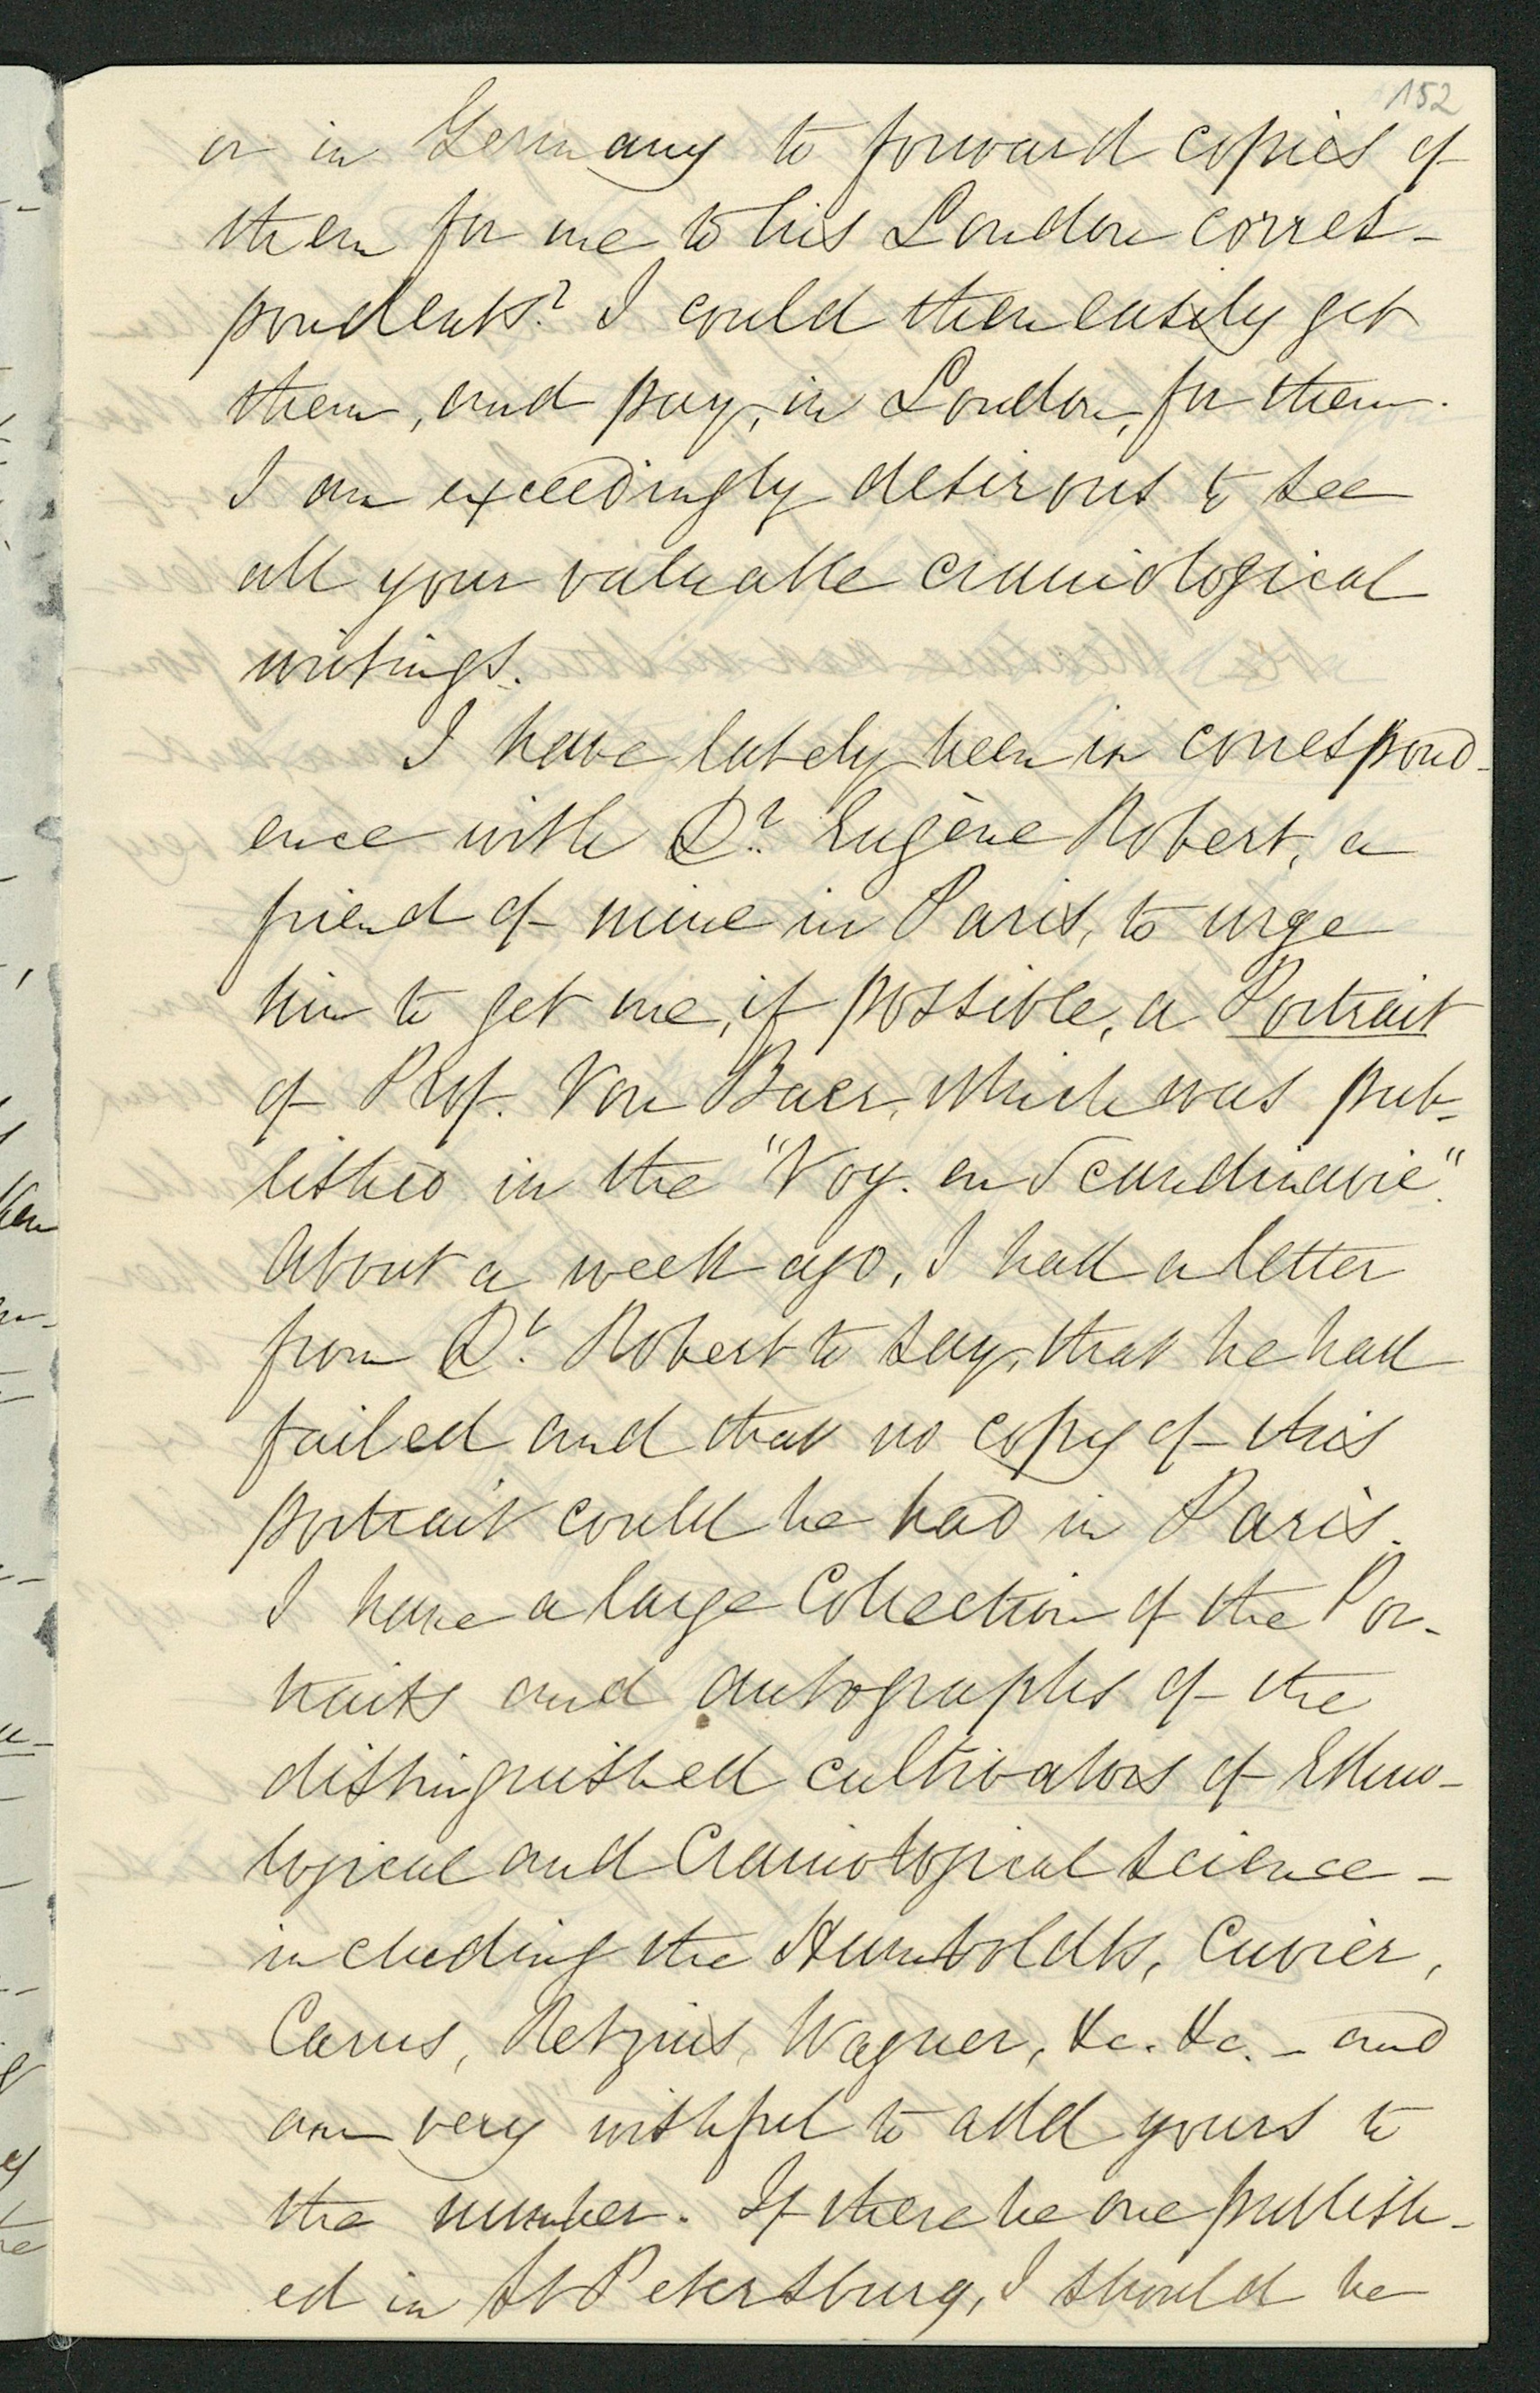 152
or in Germany to forward copies of
them for me to his London corres-
pondents? I could then easily get
them, and pay, in London, for them.
I am exceedingly desirous to see
all your valuable craniological
writings.
I have lately been in correspond-
ence with Dr. Eugène Robert, a
friend of mine in Paris, to urge
him to get me, if possible, a Portrait
of Prof. Von Baer, which was pub-
lished in the "Voy. en Scandinavie".
About a week ago, I had a letter
from Dr. Robert to say, that he had
failed and that no copy of this
portrait could be had in Paris.
I have a large Collection of the Por-
traits and autographs of the
distinguished cultivators of Ethno-
logical and Craniological science -
including the Humboldts, Cuvier,
Carus, Retzius, Wagner, &c. &c. - and
am very wishful to add yours to
the number. If there be one publish-
ed in St Petersburg, I should be